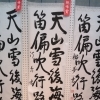 笛偏吹行路
天山雪後海
笛偏吹行路
天山雪後海